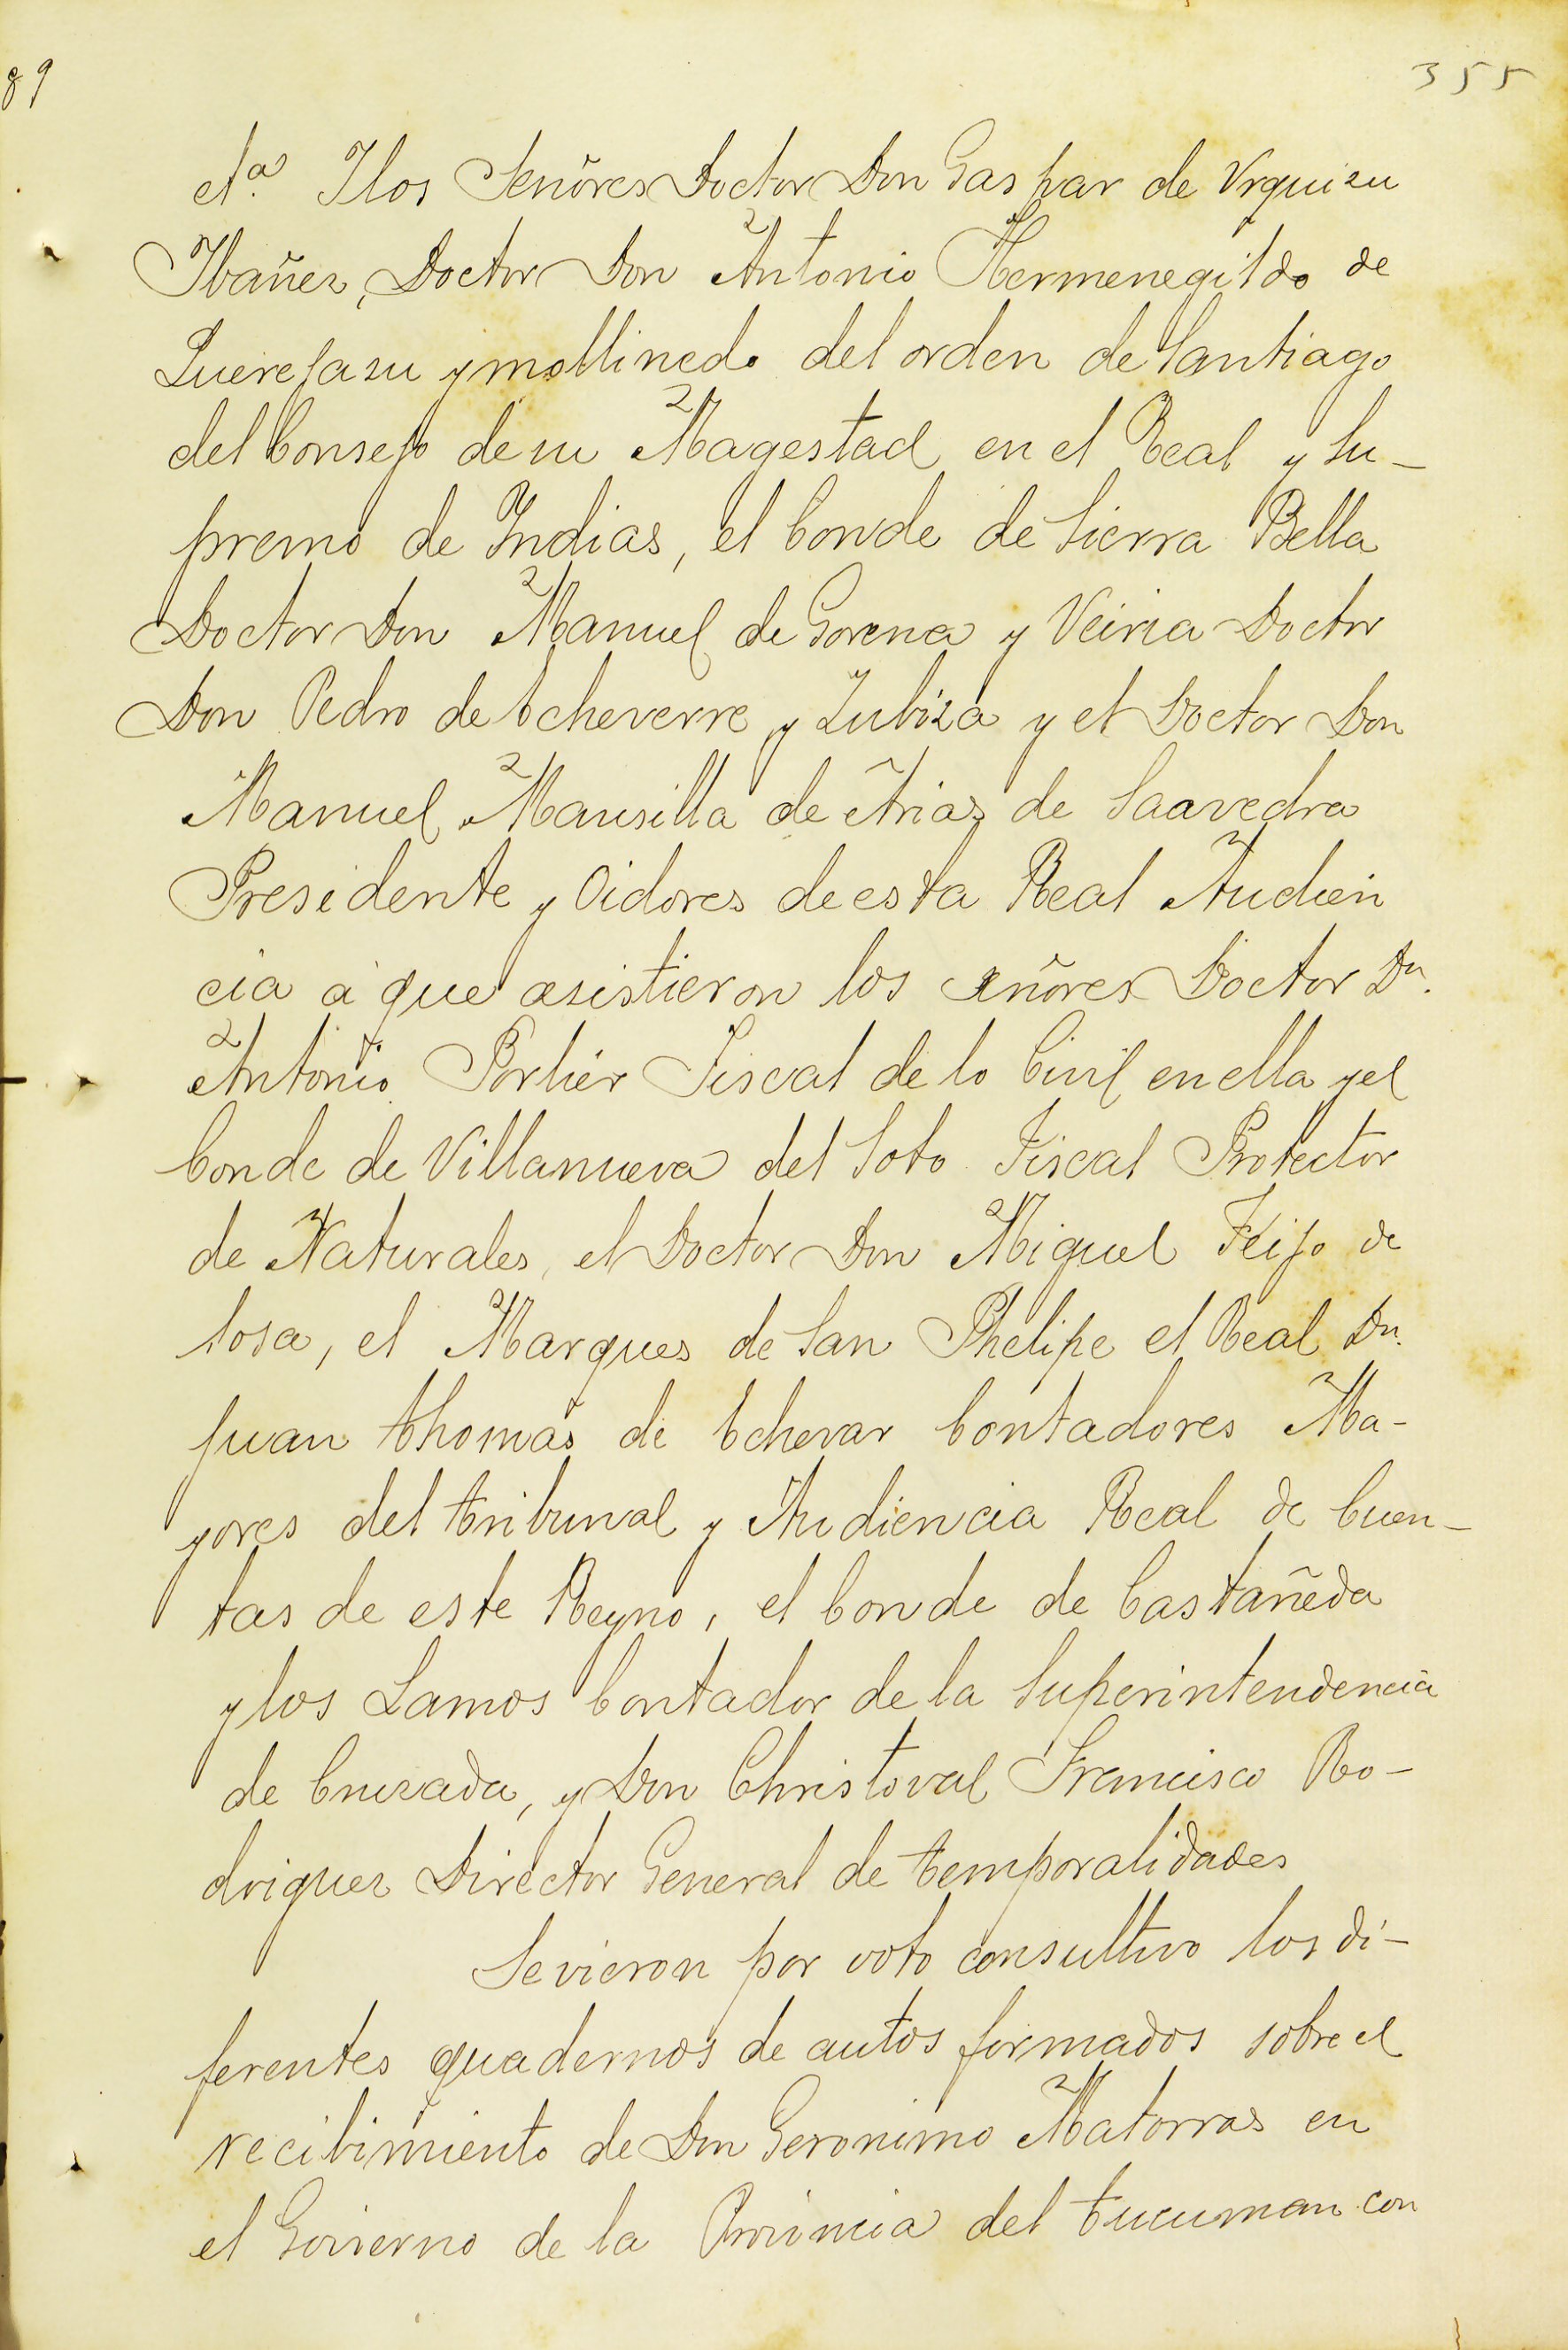 89
355
eta. Ylos Señores Doctor Don Gaspar de Vrquizu
Ybañez, Doctor Don Antonio Hermenegildo de
Querejazu y mollinedo del orden de Santiago
del Consejo de su Magestad en el Real y Su-
premo de Yndias, el Conde de Sierra Bella
Doctor Don Manuel de Gorena y Veiria Doctor
Don Pedro de Echeverre y Zubiza y el Doctor Don
Manuel Mansilla de Arias de Saavedra
Presidente y Oidores de esta Real Audien
cia á que asistieron los señores Doctor Dn.
Antonio Porlier Fiscal de lo Civil en ella y el
Conde de Villanueva del Soto Fiscal Protector
de Naturales, el Doctor Don Miguel Feijo de
Sosa, el Marques de San Phelipe el Real Dn.
Juan thomas de Echevar Contadores Ma-
yores del tribunal y Audiencia Real de Cuen-
tas de este Reyno, el Conde de Castañeda
y los Lamos Contador de la Superintendencia
de Cruzada, y Don Christoval Francisco Ro-
driguez Director General de temporalidades
Se vieron por voto consultivo los di-
ferentes quadernos de autos formados sobre el
recibimiento de Don Geronimo Matorras en
el Govierno de la Provincia del tucuman con